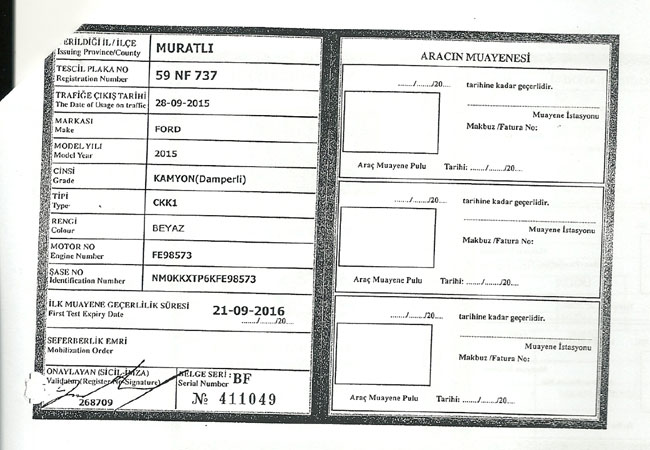 VERİLDİĞİ İL / İLÇE
Issuing Province/County
MURATLI
TESCİL PLAKA NO
Registration Number
59 NF 737
TRAFİĞE ÇIKIŞ TARİHİ
The Date of Usage on traffic
28-09-2015
MARKASI
Make
FORD
MODEL YILI
Model Year
2015
CİNSİ
Grade
KAMYON(Damperli)
TİPİ
Type
CKK1
RENGİ
Colour
BEYAZ
MOTOR NO
Engine Number
FE98573
ŞASE NO
Identification Number
NM0KKXTP6KFE98573
İLK MUAYENE GEÇERLİLİK SÜRESİ
First Test Expiry Date
21-09-2016
....../....../20....
SEFERBERLİK EMRİ
Mobilization Order
....../....../20....
ONAYLAYAN (SİCİL-İMZA)
Validatory(Register No-Signature)
268709
BELGE SERİ : BF
Serial Number
№ 411049
ARACIN MUAYENESİ
....../....../20.... tarihine kadar geçerlidir.
Muayene İstasyonu
Makbuz /Fatura No:
Araç Muayene Pulu Tarihi: ......./......./20....
....../....../20.... tarihine kadar geçerlidir.
Muayene İstasyonu
Makbuz /Fatura No:
Araç Muayene Pulu Tarihi: ......./......./20....
....../....../20.... tarihine kadar geçerlidir.
Muayene İstasyonu
Makbuz /Fatura No:
Araç Muayene Pulu Tarihi: ......./......./20....